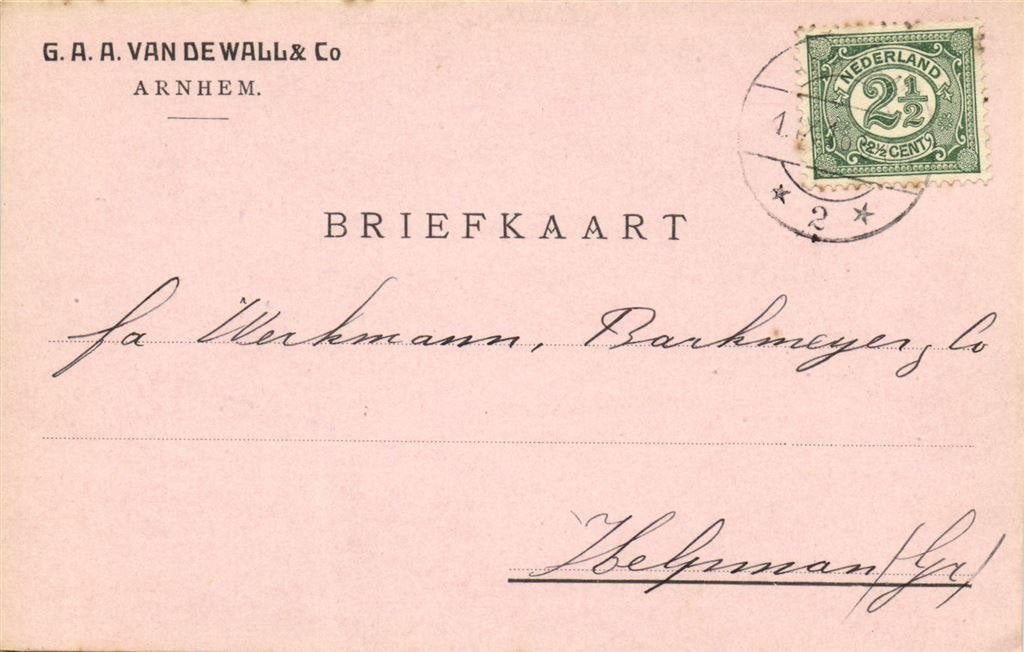 G. A. A. VAN DE WALL & Co
ARNHEM.
NEDERLAND
2½
2½ CENT
2
BRIEFKAART
fa Werkmann, Barkmeyer & Co
Helpman (Gr)